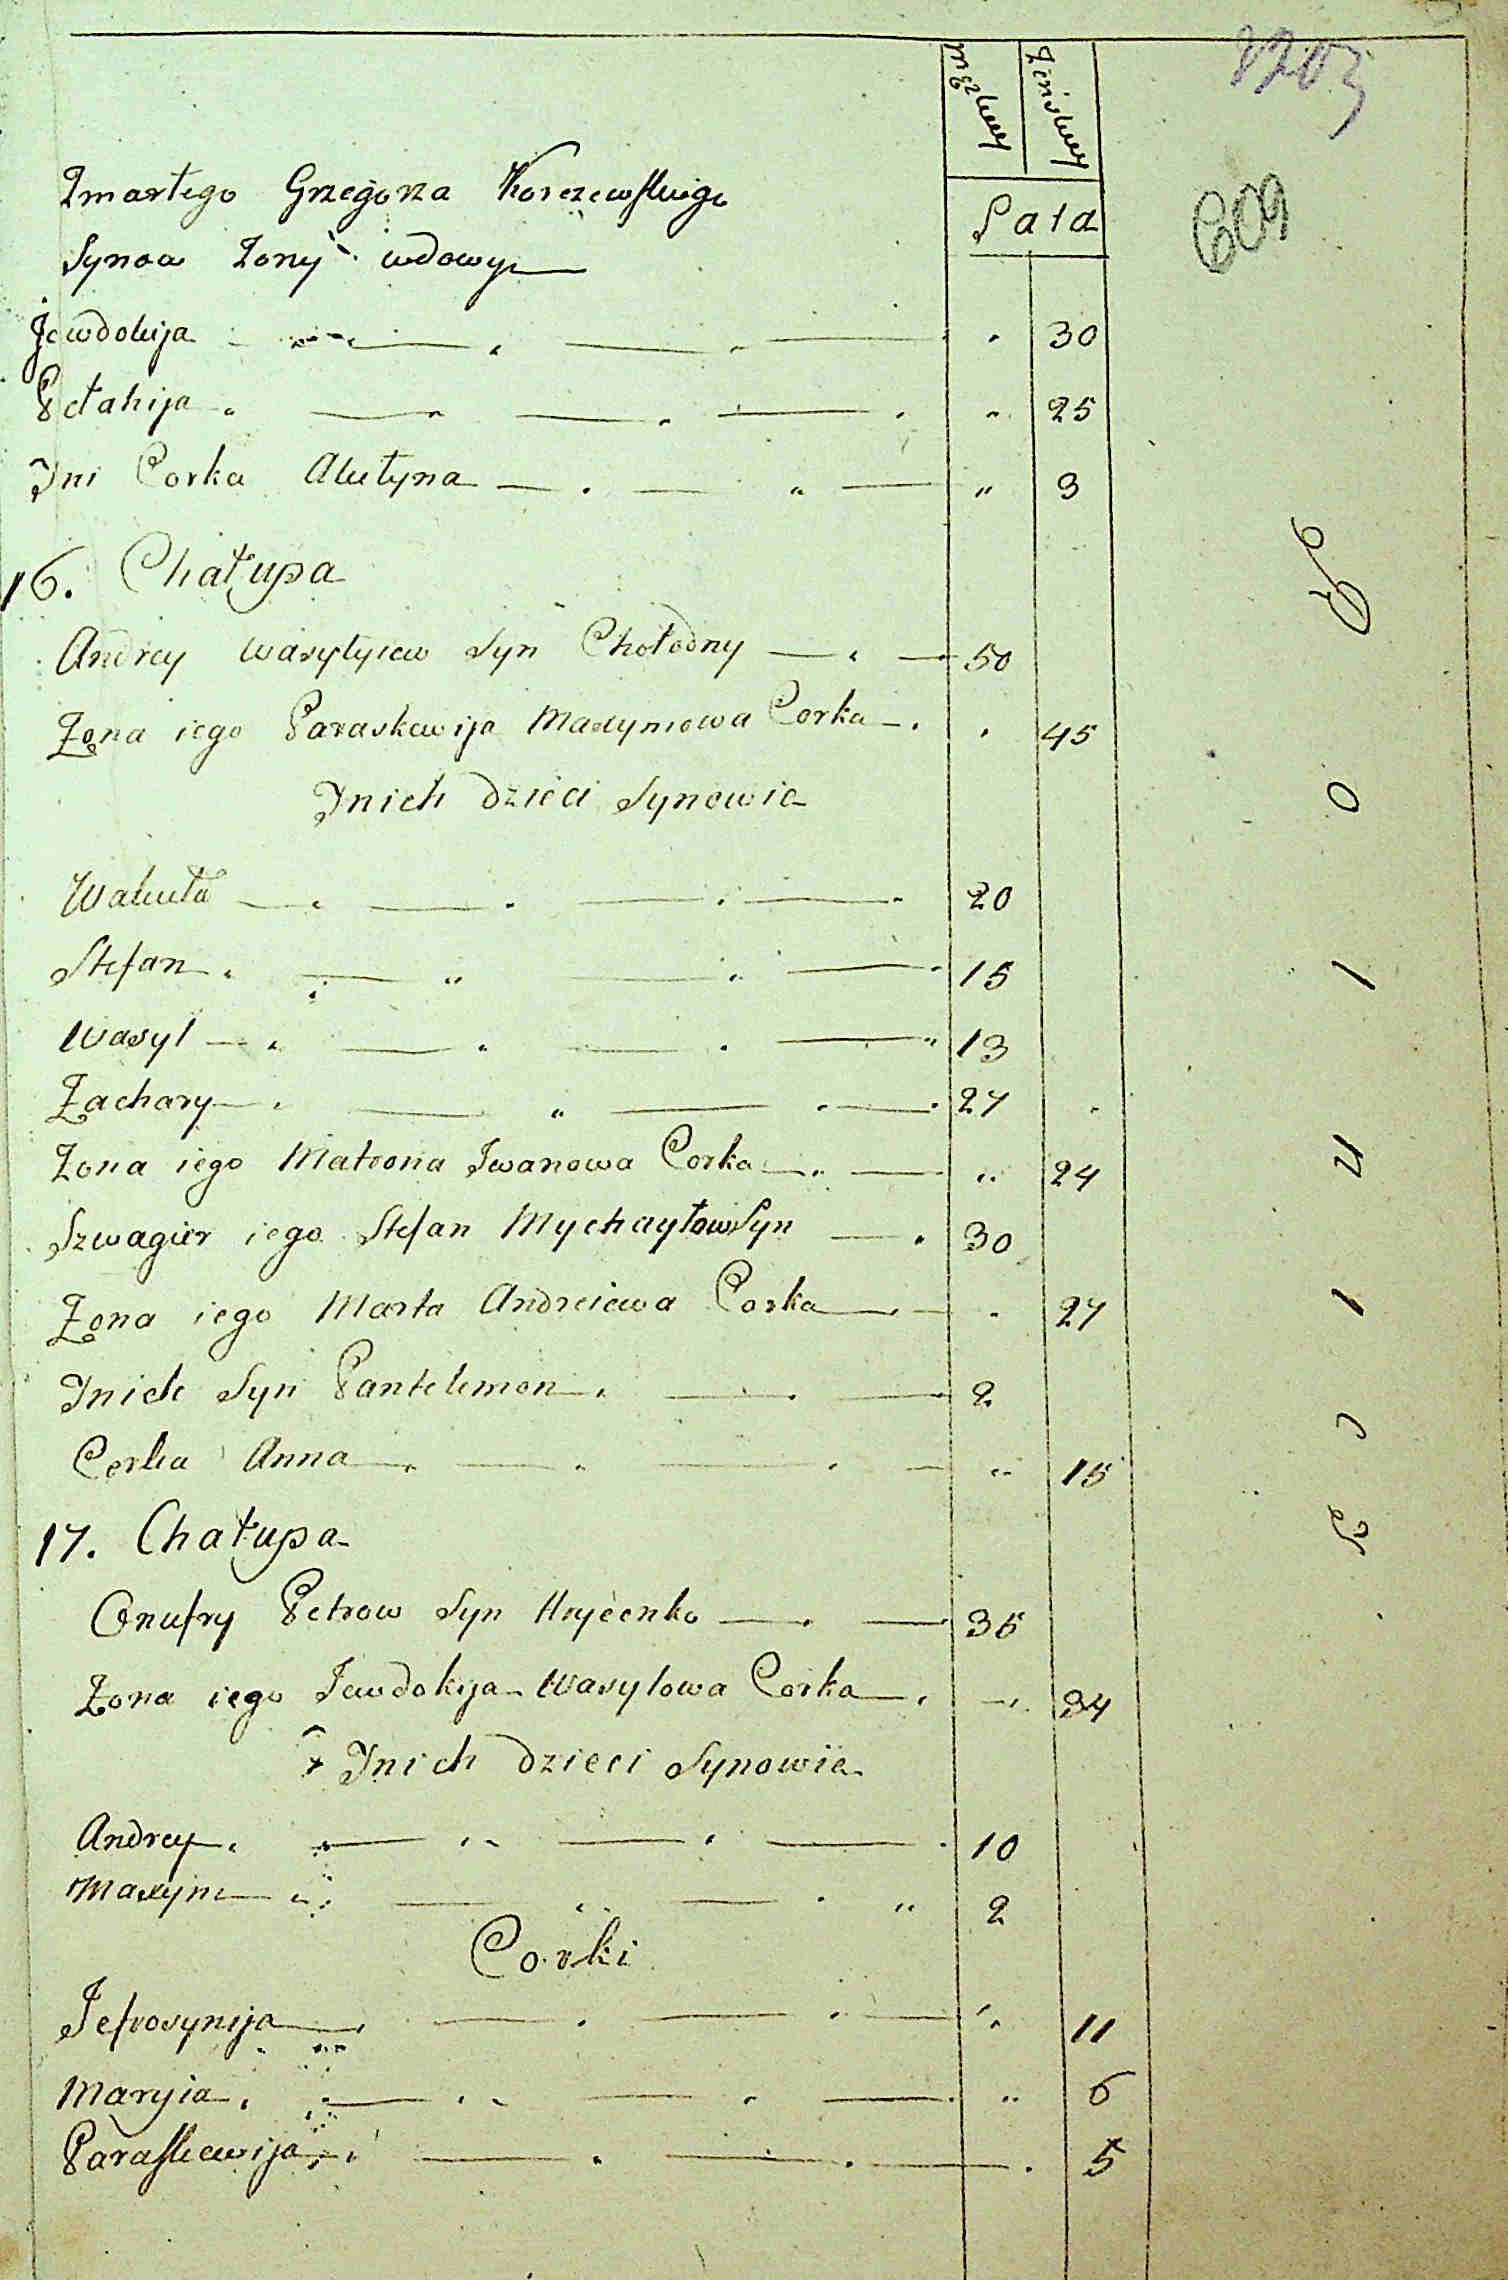 Męzkey Zinskey
8203
609
Lata
Zmarłego Grzegorza Korczewskiego
Synoa Zony wdowy
Jewdokija 30
Pełahija 25
Jni Corka Akutyna 3
16. Chałupa
Andrey Wasylyiew Syn Chołodny 50
Zona iego Paraskewija Maxymowa Corka 45
Jnich dzieci Synowie
Wakuła 20
Stefan 15
Wasyl 13
Zachary 27
Zona iego Matrona Iwanowa Corka 24
Szwagier iego Stefan Mychayłow Syn 30
Zona iego Marta Andreiewa Corka 27
Jnich Syn Pantelemon 2
Corka Anna 15
17. Chałupa
Onufry Petrow Syn Hryćenko 35
Zona iego Jewdokija Wasylowa Corka 34
Jnich dzieci Synowie
Andrey 10
Maxym 2
Corki
Jefrosynija 11
Maryia 6
Paraskewija 5